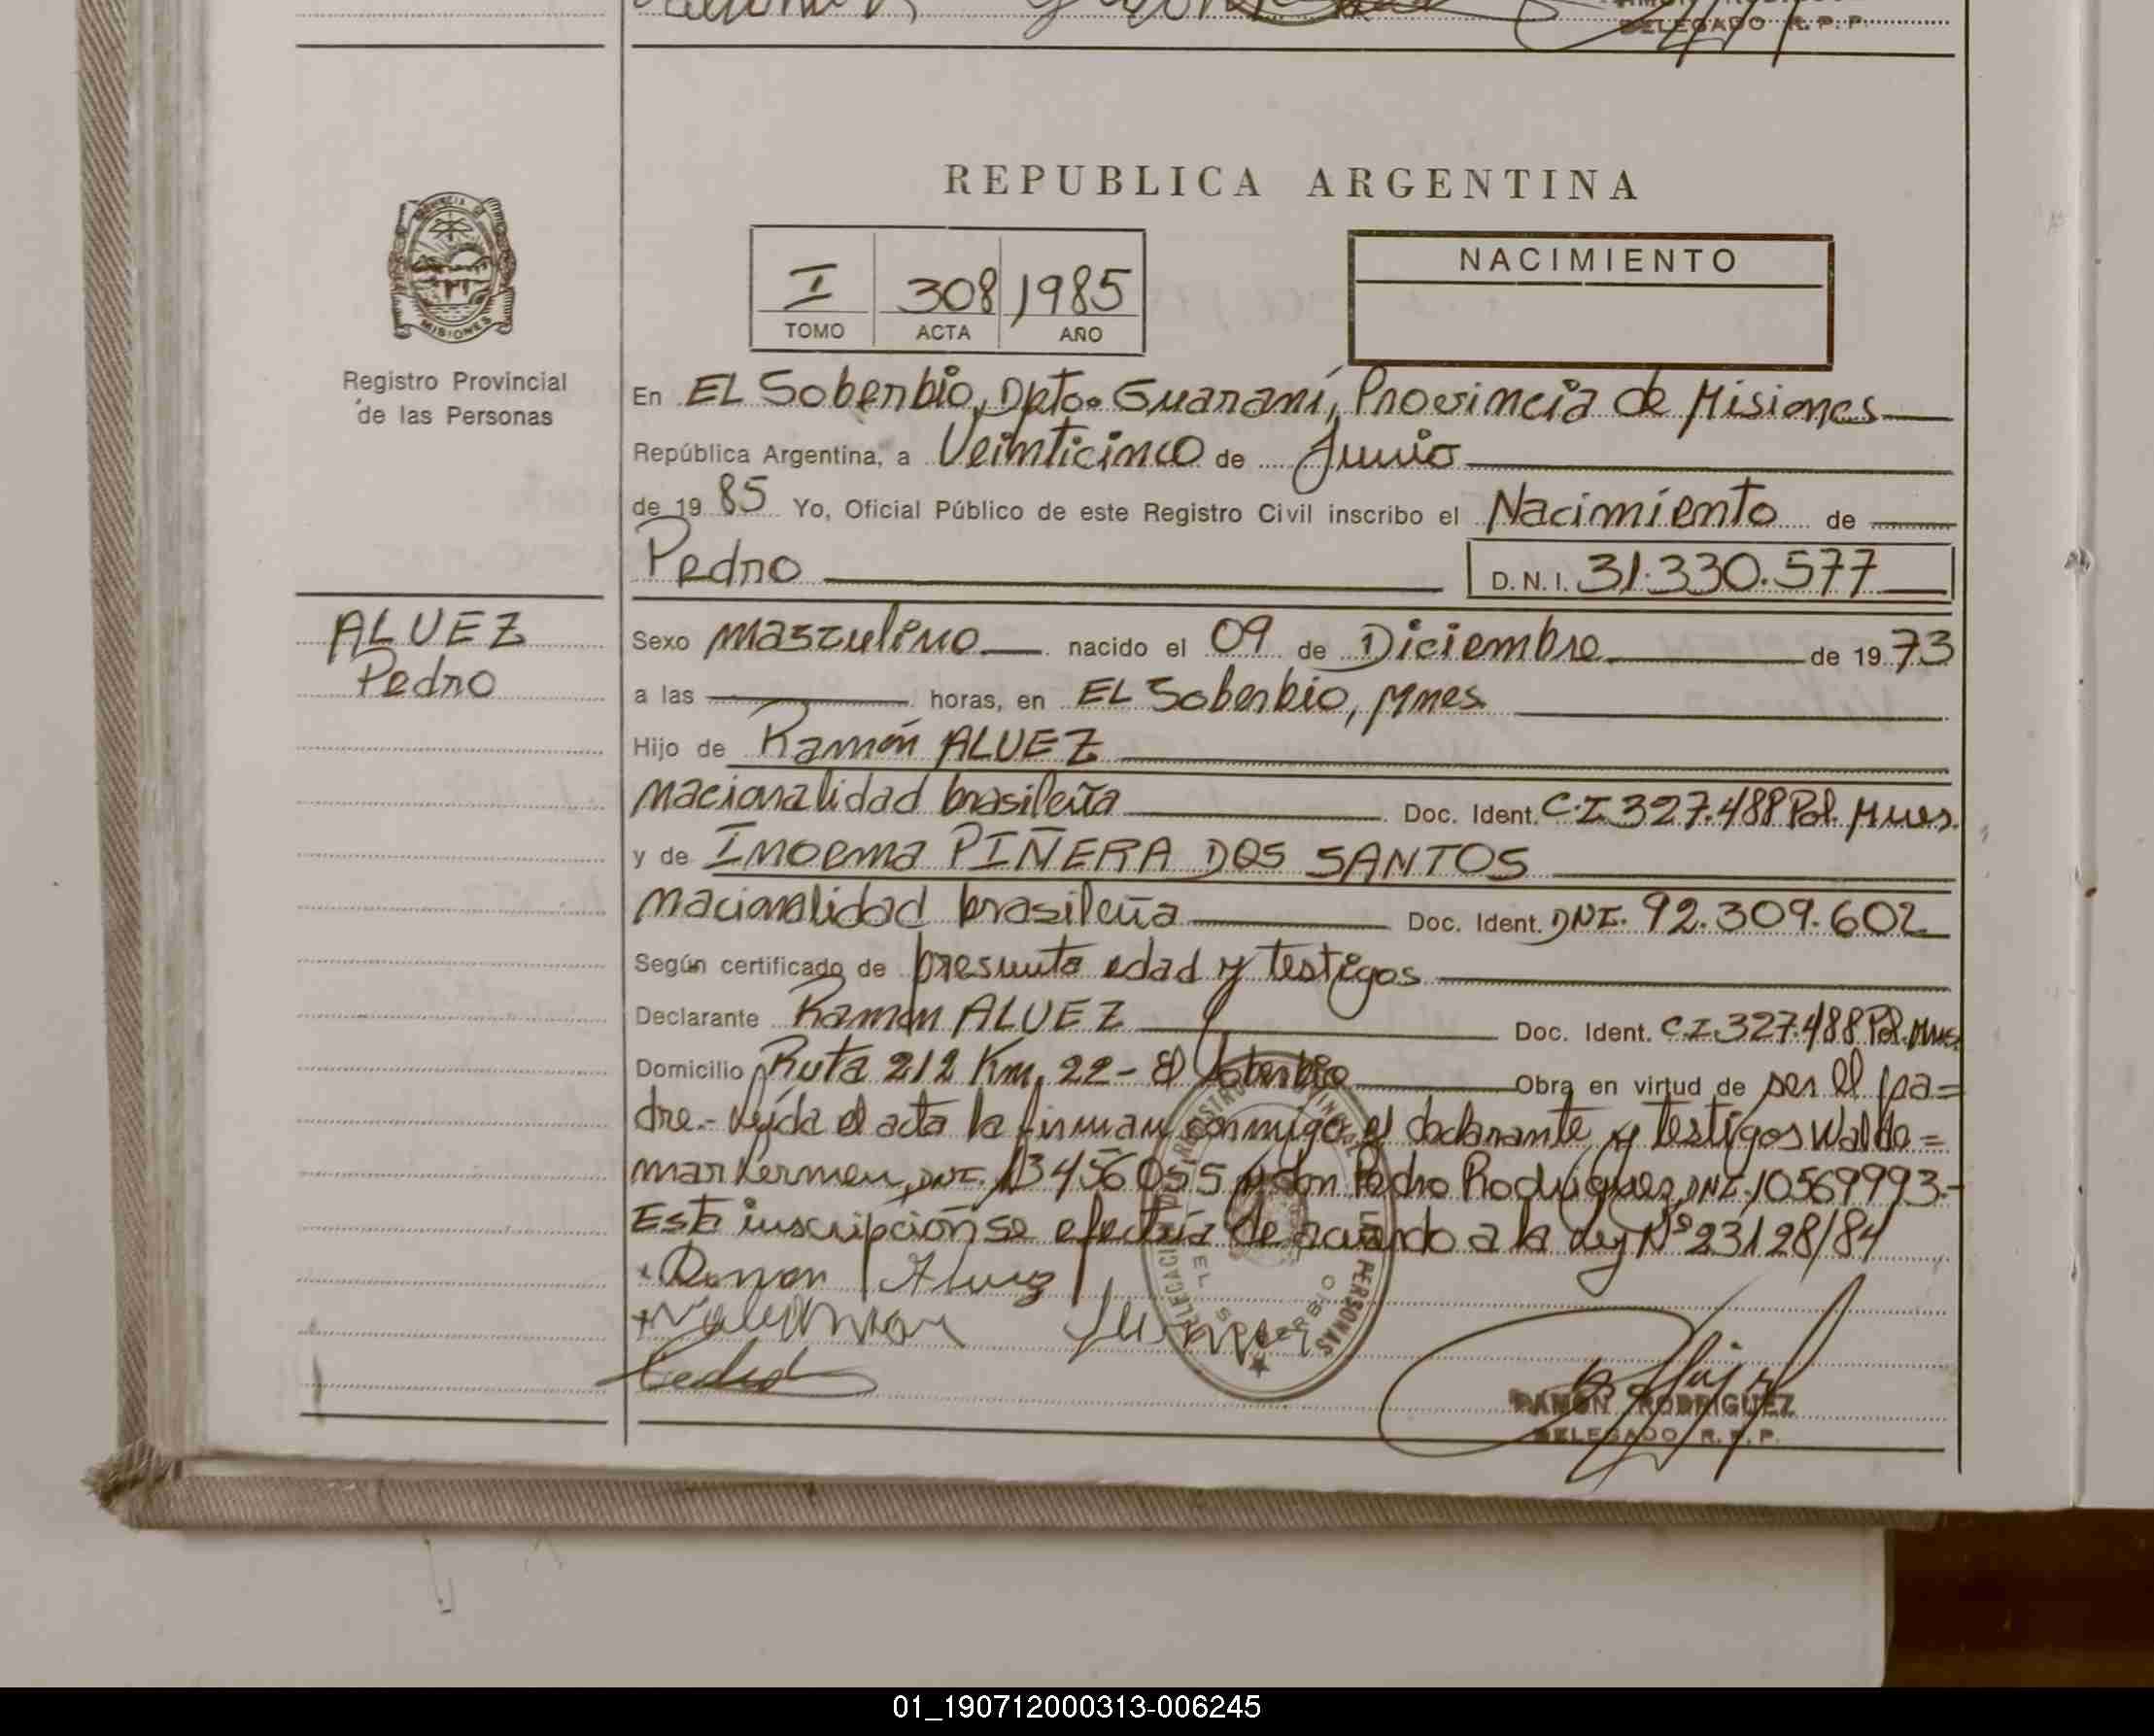 DELEGADO R.P.P.
REPUBLICA ARGENTINA
PROVINCIA DE
MISIONES
Registro Provincial
de las Personas
I 308 1985
TOMO ACTA AÑO
NACIMIENTO
En EL Soberbio, Dpto. Guaraní, Provincia de Misiones
República Argentina, a Veinticinco de Junio
de 19 85 Yo, Oficial Público de este Registro Civil inscribo el Nacimiento de
Pedro D.N.I. 31.330.577
ALVEZ
Pedro
Sexo masculino nacido el 09 de Diciembre de 19 73
a las horas, en EL Soberbio, Mnes.
Hijo de Ramón ALVEZ
nacionalidad brasileña Doc. Ident. C.I. 327.488 Pol. Mnes.
y de Imoema PIÑERA DOS SANTOS
nacionalidad brasileña Doc. Ident. DNI. 92.309.602
Según certificado de presunta edad y testigos
Declarante Ramón ALVEZ Doc. Ident. C.I. 327.488 Pol. Mnes
Domicilio Ruta 212 Km. 22 - El Soberbio Obra en virtud de ser el pa=
dre.- Leída el acta la firman conmigo el declarante y testigos Walde=
mar Kermen, DNI. 13456055 y don Pedro Rodrigues, DNI. 10569993.-
Esta inscripción se efectúa de acuerdo a la Ley Nº 23128/84
Ramon Alvez
Waldemar
Pedro
RAMON RODRIGUEZ
DELEGADO R.P.P.
01_190712000313-006245